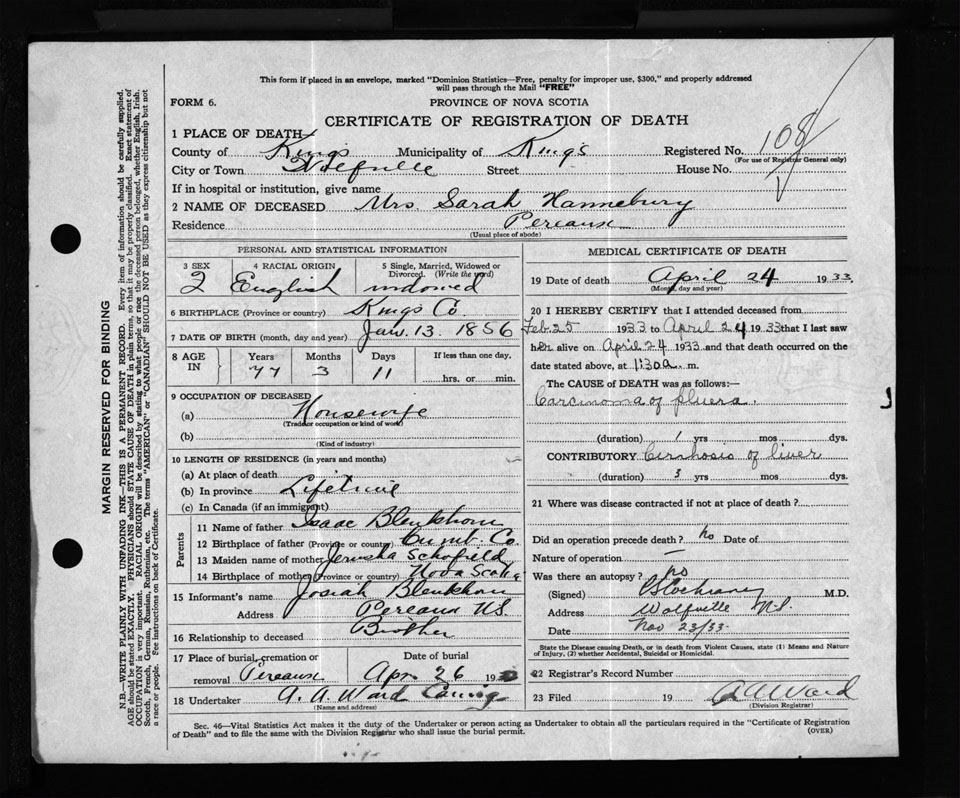 This form if placed in an envelope, marked "Dominion Statistics—Free, penalty for improper use, $300," and properly addressed
will pass through the Mail "FREE"
FORM 6.
PROVINCE OF NOVA SCOTIA
CERTIFICATE OF REGISTRATION OF DEATH
1 PLACE OF DEATH—
County of Kings Municipality of Kings Registered No. 108
(For use of Registrar General only)
City or Town Wolfville Street House No.
If in hospital or institution, give name
2 NAME OF DECEASED Mrs. Sarah Hannebury
Residence Pereaux
(Usual place of abode)
PERSONAL AND STATISTICAL INFORMATION
3 SEX 4 RACIAL ORIGIN 5 Single, Married, Widowed or
Divorced. (Write the word)
English widowed
6 BIRTHPLACE (Province or country) Kings Co.
7 DATE OF BIRTH (month, day and year) Jan. 13. 1856
8 AGE IN Years Months Days If less than one day,
77 3 11 hrs. or min.
9 OCCUPATION OF DECEASED
(a) Housewife
(Trade or occupation or kind of work)
(b)
(Kind of industry)
10 LENGTH OF RESIDENCE (in years and months)
(a) At place of death
(b) In province Lifetime
(c) In Canada (if an immigrant)
Parents
11 Name of father Isaac Blenkhorn
12 Birthplace of father (Province or country) Cumb. Co.
13 Maiden name of mother Jerusha Schofield
14 Birthplace of mother (Province or country) Nova Scotia
15 Informant's name Josiah Blenkhorn
Address Pereaux NS
16 Relationship to deceased Brother
17 Place of burial, cremation or Date of burial
removal Pereaux Apr 26 193
18 Undertaker A. A. Ward Canning
(Name and address)
MEDICAL CERTIFICATE OF DEATH
19 Date of death April 24 1933
(Month, day and year)
20 I HEREBY CERTIFY that I attended deceased from
Feb 25 1933 to April 24 1933 that I last saw
her alive on April 24 1933 and that death occurred on the
date stated above, at 1:30 a. m.
The CAUSE OF DEATH was as follows:—
Carcinoma of pluera.
(duration) 1 yrs mos dys.
CONTRIBUTORY Cirrhosis of liver
(duration) 3 yrs. mos. dys.
21 Where was disease contracted if not at place of death?
Did an operation precede death? no Date of
Nature of operation —
Was there an autopsy? no
(Signed) Cochrane M.D.
Address Wolfville N.S.
Date Nov 23/33.
State the Disease causing Death, or in death from Violent Causes, state (1) Means and Nature
of Injury, (2) whether Accidental, Suicidal or Homicidal.
22 Registrar's Record Number
23 Filed 19 A A Ward
(Division Registrar)
Sec. 46—Vital Statistics Act makes it the duty of the Undertaker or person acting as Undertaker to obtain all the particulars required in the "Certificate of Registration
of Death" and to file the same with the Division Registrar who shall issue the burial permit. (OVER)
MARGIN RESERVED FOR BINDING
N.B.—WRITE PLAINLY WITH UNFADING INK—THIS IS A PERMANENT RECORD. Every item of information should be carefully supplied.
AGE should be stated EXACTLY. PHYSICIANS should STATE CAUSE OF DEATH in plain terms, so that it may be properly classified. Exact statement of
OCCUPATION is very important. RACIAL ORIGIN will be described by stating to what people or race the deceased person belonged, whether English, Irish,
Scotch, French, German, Russian, Ruthenian, etc. The terms "AMERICAN" or "CANADIAN" SHOULD NOT BE USED as they express citizenship but not
a race or people. See instructions on back of Certificate.